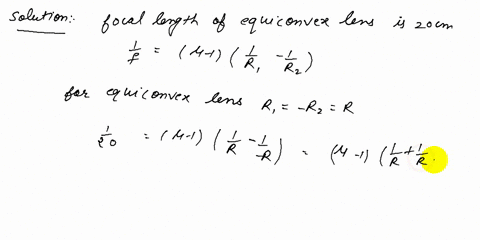 Solution:- focal length of equiconvex lens is 20cm
1/f = (μ-1) (1/R₁ - 1/R₂)
for equiconvex lens R₁ = -R₂ = R
1/20 = (μ-1) (1/R - 1/-R) = (μ-1) (1/R + 1/R